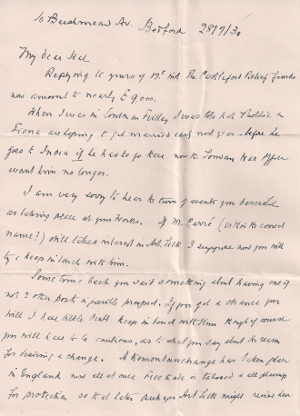 10 Bushmead Av. Bedford 28/7/30
My dear
Replying to yours of the Castleford Relief funds
now amount to nearly £9000.
When I was in London on Friday I was told that
Fiona are hoping to get married early next year - before he
goes to India if he has to go there now the London War Office
want him no longer.
I am very sorry to hear the turn of events you describe
as taking place at your Works. If M. Carré (is this the correct
name?) still takes interest in I suppose you will
try & keep in touch with him.
Some time back you said something about having one if
not 2 other posts in possible prospect. If you get a chance you
will I have little doubt keep in touch with them though of course
you will have to be cautious, as to what you say about the reason
for desiring a change. A tremendous change has taken place
in England now all at once Free trade is tabooed & all plump
for protection so that later perhaps might revive her